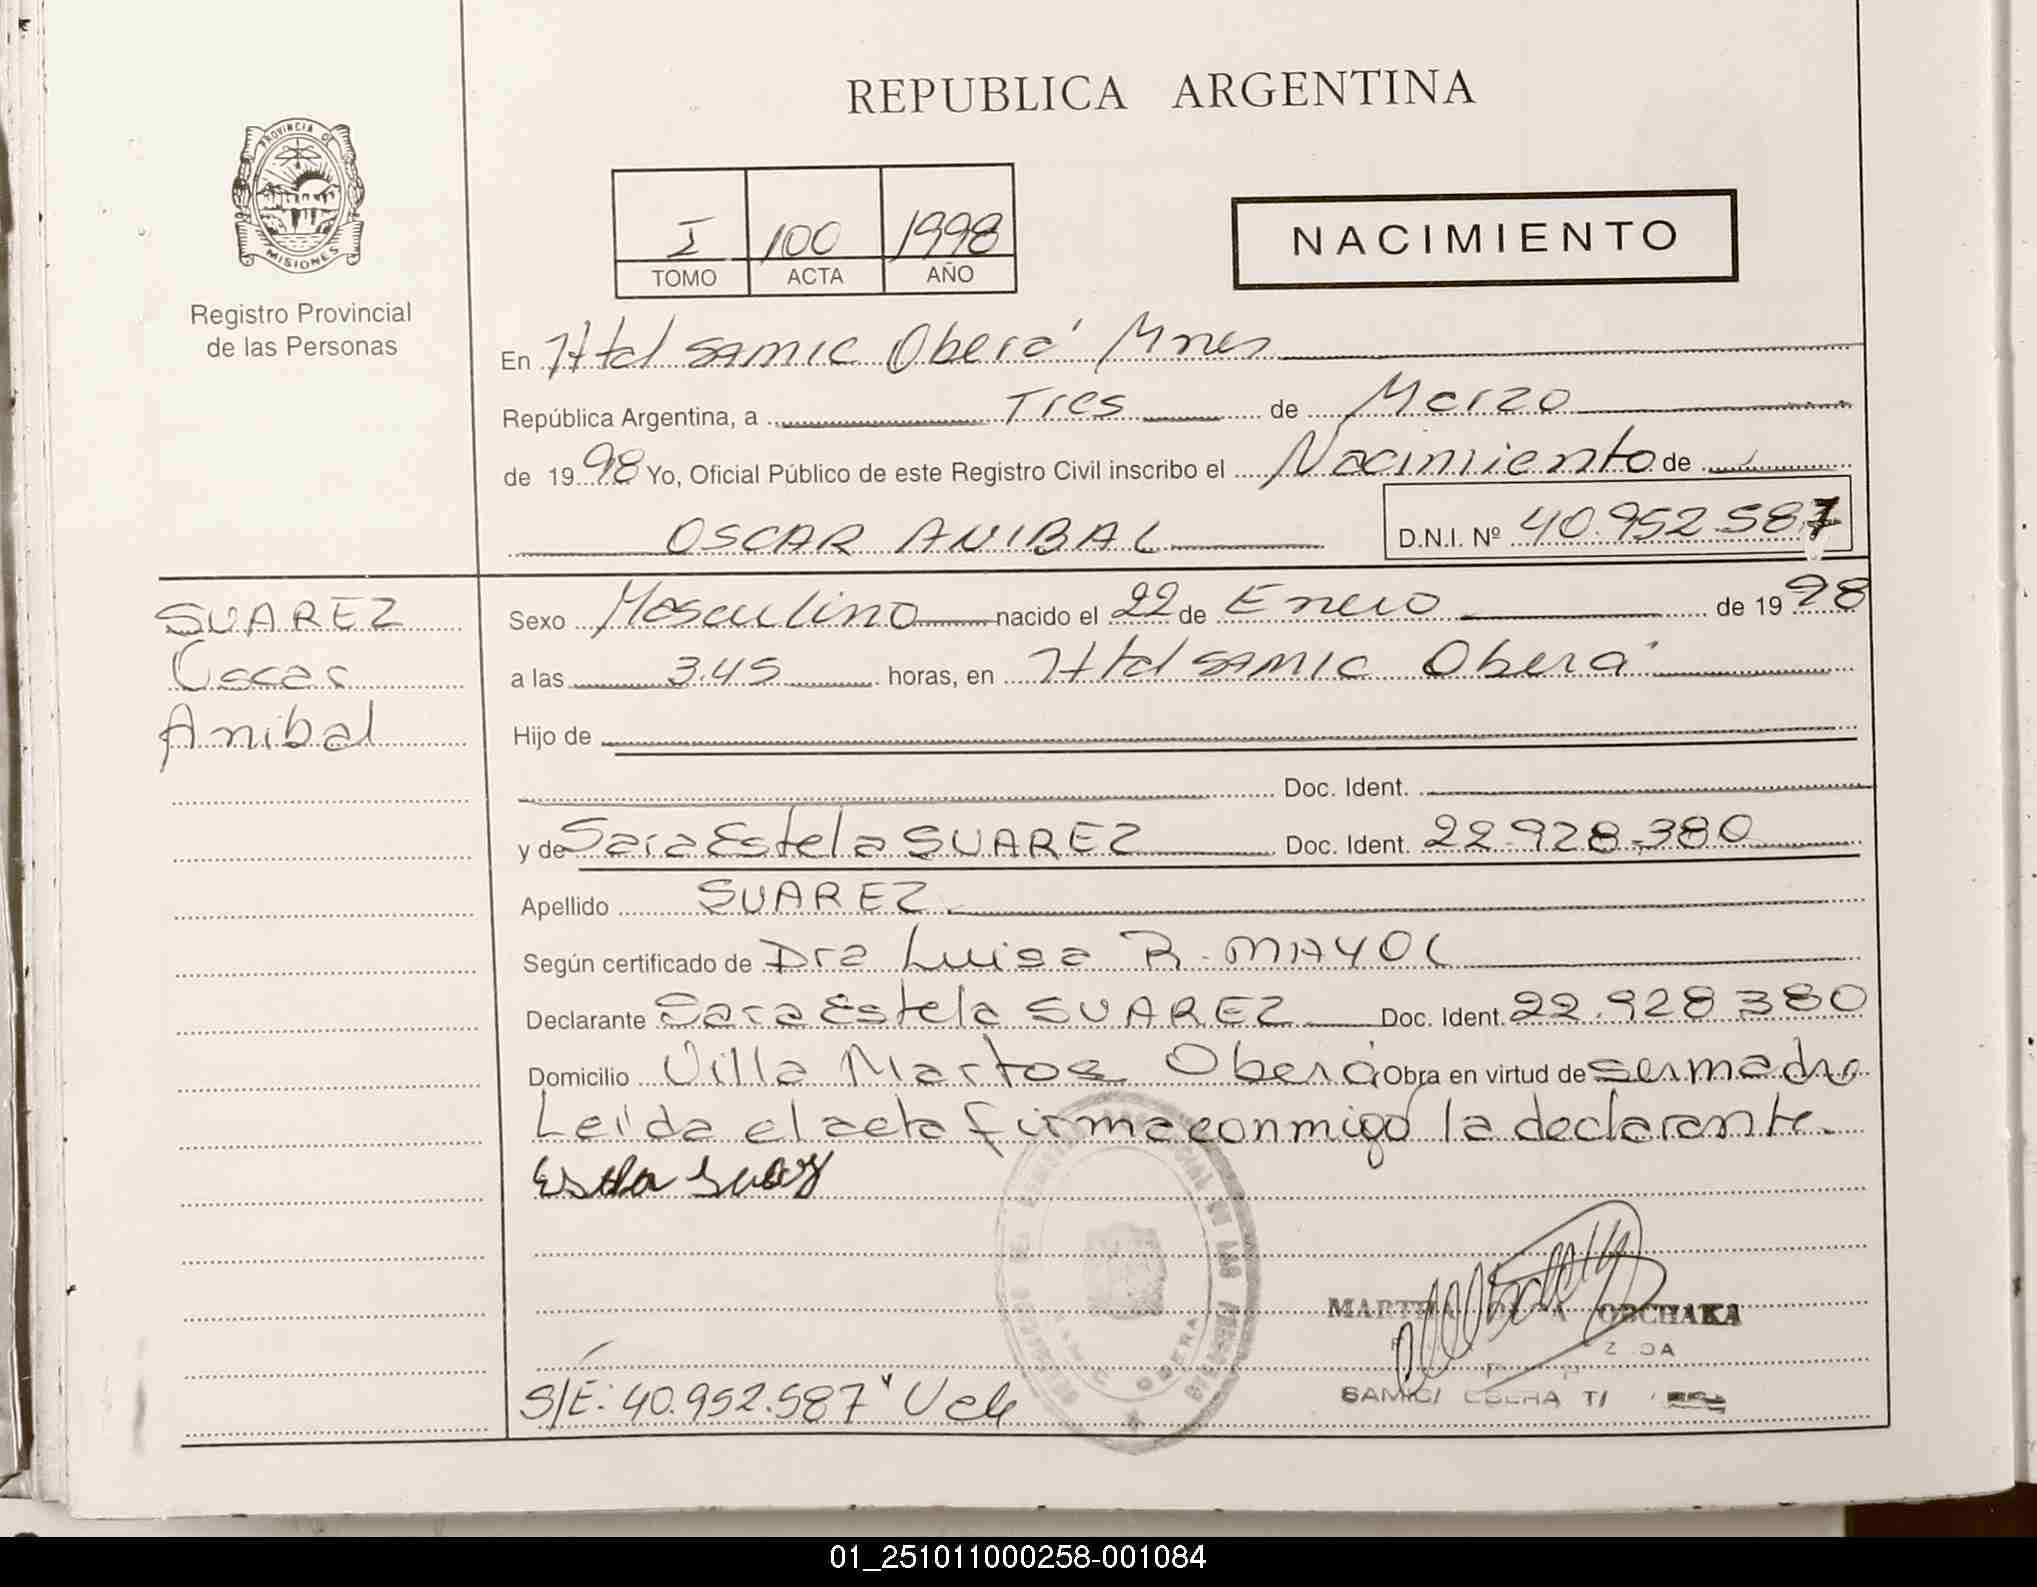 REPUBLICA ARGENTINA
PROVINCIA DE
MISIONES
Registro Provincial
de las Personas
I 100 1998
TOMO ACTA AÑO
NACIMIENTO
En Htal SAMIC Oberá Mnes
República Argentina, a Tres de Marzo
de 1998 Yo, Oficial Público de este Registro Civil inscribo el Nacimiento de
OSCAR ANIBAL D.N.I. Nº 40.952.587
SUAREZ
Oscar
Anibal
Sexo Masculino nacido el 22 de Enero de 1998
a las 3.45 horas, en Htal SAMIC Oberá
Hijo de
Doc. Ident.
y de Sara Estela SUAREZ Doc. Ident. 22.928.380
Apellido SUAREZ
Según certificado de Dra Luisa R. MAYOL
Declarante Sara Estela SUAREZ Doc. Ident. 22.928.380
Domicilio Villa Martos Oberá Obra en virtud de ser madre
Leída el acta firma conmigo la declarante.
Estela Suarez
MARTHA OLGA
SAMIC/
OBERA
S/E: 40.952.587 Vale
01_251011000258-001084